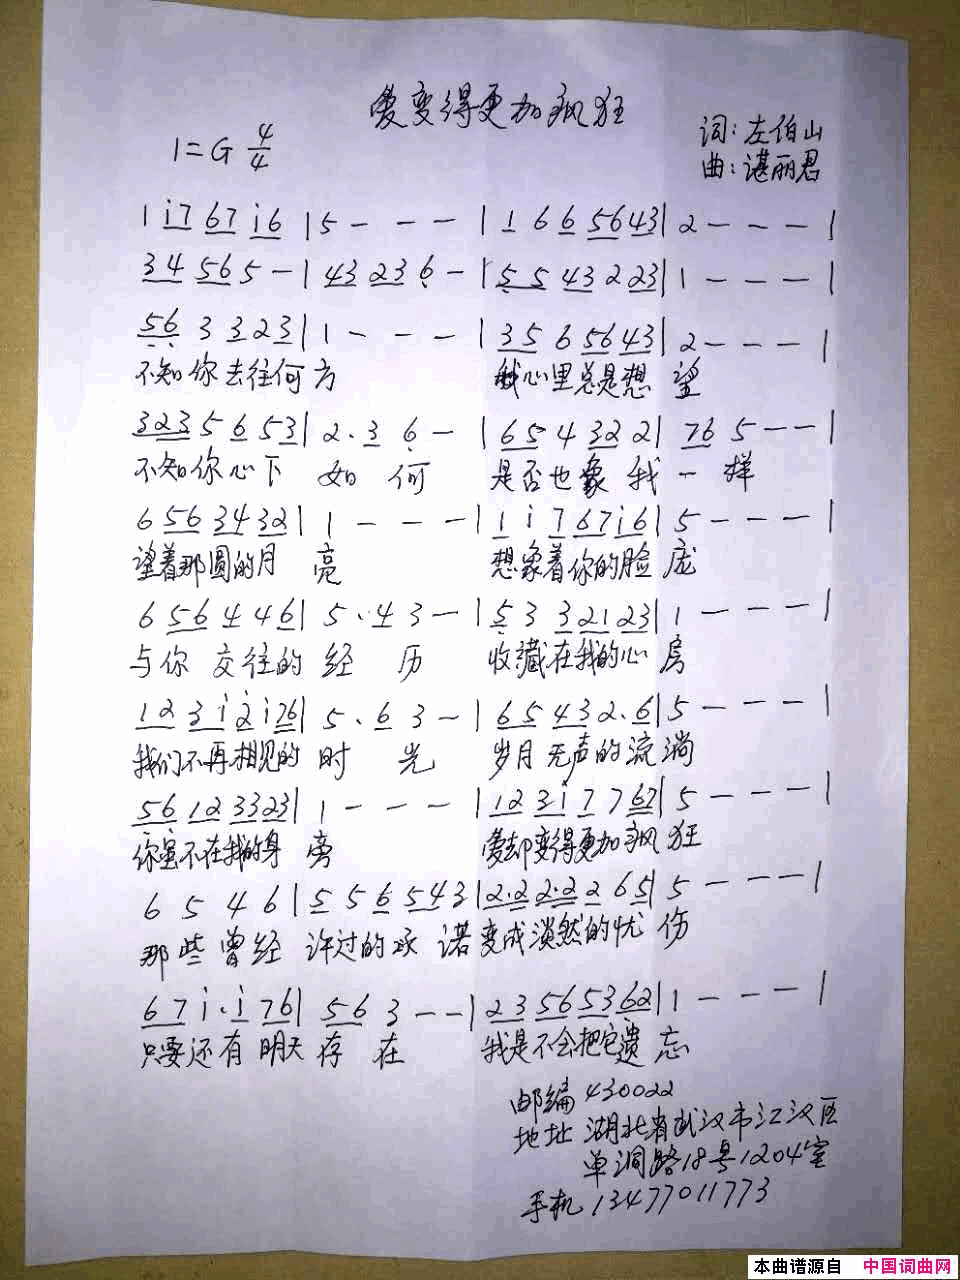 爱变得更加疯狂
1=G 4/4
词:左伯山
曲:谌丽君
1 i7 67 i6 | 5 - - - | 1 6 6 56 43 | 2 - - - |
34 56 5 - | 43 23 6 - | 55 43 2 23 | 1 - - - |
56 3 3 23 | 1 - - - | 35 6 56 43 | 2 - - - |
不知你去往何方 我心里总是想望
323 5 6 53 | 2· 3 6 - | 65 4 32 2 | 76 5 - - |
不知你心下如何 是否也象我一样
6 56 34 32 | 1 - - - | 1 i 7 67 i6 | 5 - - - |
望着那圆的月亮 想象着你的脸庞
6 56 4 46 | 5· 4 3 - | 5 3 321 23 | 1 - - - |
与你交往的经历 收藏在我的心房
12 3i 2i 76 | 5· 6 3 - | 65 43 2· 6 | 5 - - - |
我们不再相见的时光 岁月无声的流淌
56 12 33 23 | 1 - - - | 12 3i 7 7 67 | 5 - - - |
你虽不在我的身旁 爱却变得更加疯狂
6 5 4 6 | 5 5 6 54 3 | 2·2 2·2 2 6 5 | 5 - - - |
那些曾经许过的承诺变成淡然的忧伤
67 i· i 76 | 56 3 - - | 23 56 53 62 | 1 - - - |
只要还有明天存在 我是不会把它遗忘
邮编 430022
地址 湖北省武汉市江汉区
单洞路18号1204室
手机 13477011773
本曲谱源自 中国词曲网